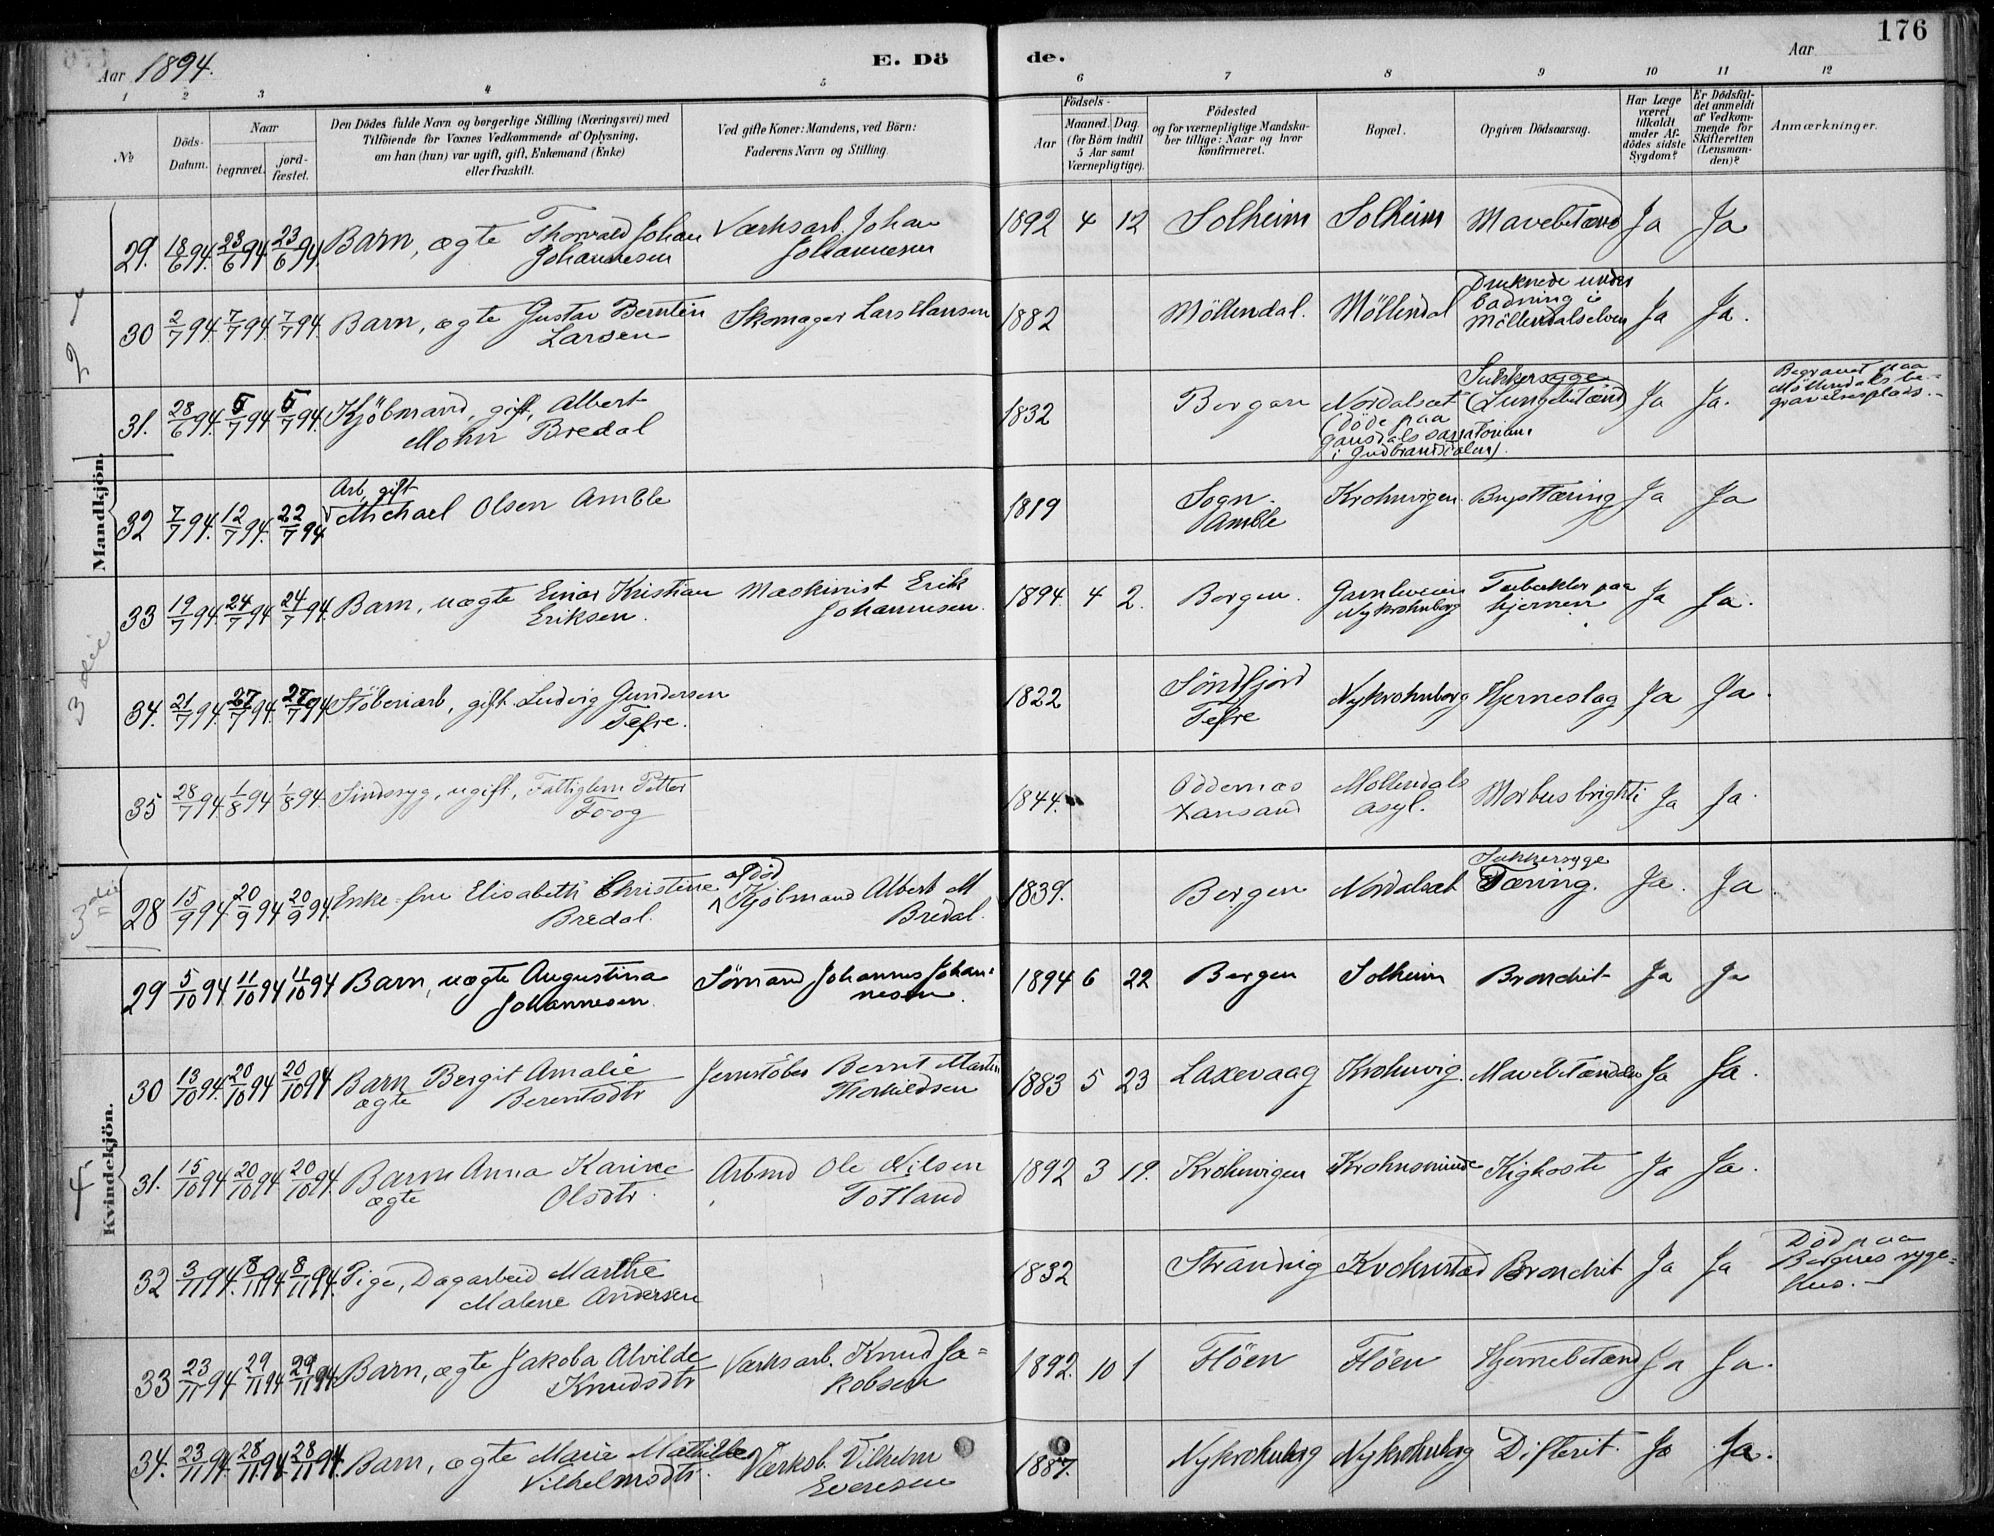 176
Aar 1894.
E. Döde.
Aar
1 2 3 4 5 6 7 8 9 10 11 12
№
Döds-Datum.
Naar
begravet.
jord-fæstet.
Den Dödes fulde Navn og borgerlige Stilling (Næringsvei) med
Tilföiende for Voxnes Vedkommende af Oplysning,
om han (hun) var ugift, gift, Enkemand (Enke)
eller fraskilt.
Ved gifte Koner: Mandens, ved Börn:
Faderens Navn og Stilling.
Födsels-
Aar
Maaned. Dag.
(for Börn indtil
5 Aar samt
Værnepligtige).
Födested
og for værnepligtige Mandska-
ber tillige: Naar og hvor
konfirmeret.
Bopæl.
Opgiven Dödsaarsag.
Har Læge
været
tilkaldt
under Af-
dödes sidste
Sygdom?
Er Dödsfal-
det anmeldt
af Vedkom-
mende for
Skifteretten
(Lensman-
den)?
Anmærkninger.
Mandkjön.
29. 18/6 94. 23/6 94. 23/6 94. Barn, ægte Thorvald Johan Johannesen Værksarb. Johan Johannesen 1892 4 12 Solheim Solheim Mavebetænd Ja Ja
30 2/7 94. 7/7 94. 7/7 94. Barn, ægte Gustav Berntin Larsen Skomager Lars Hansen 1882 Möllendal. Möllendal Druknede under badning i Möllendalselven Ja Ja.
31. 28/6 94. 5/7 94 5/7 94. Kjöbmand, gift, Albert Mohn Bredal 1832 Bergen Nordalsæt (döde paa Gausdals sanatorium i Gudbrandsdalen). Sukkersyge (Lungebetænd) Ja Ja. Begravet paa Möllendals be-gravelsesplads.-
32 7/7 94. 12/7 94. 22/7 94 Arb, gift Michael Olsen Amble 1819 Sogn. Amble Krohnvigen Brysttæring Ja Ja
33 19/7 94. 24/7 94 24/7 94. Barn, uægte Einar Kristian Eriksen. Maskinist Erik Johannesen. 1894. 4 2. Bergen. Gamleveien Nykrohnborg Tuberkler paa hjernen Ja Ja.
34. 21/7 94. 27/7 94. 27/7 94 Stöberiarb, gift. Ludvig Gundersen Tefre. 1822 Söndfjord Tefre Nykrohnborg Hjerneslag Ja Ja.
35 28/7 94 1/8 94 1/8 94. Sindssyg, ugift, Fattiglem Petter Foog 1844. Oddernæs Xansand Möllendals asyl. Morbus brighti Ja Ja.
Kvindekjön.
28 15/9 94 20/9 94 20/9 94. Enke-fru Elisabeth Christine Bredal. afdöd Kjöbmand Albert M Bredal. 1839. Bergen Nordalsæt Sukkersyge Tæring. Ja. Ja.
29 5/10 94. 11/10 94 11/10 94 Barn, uægte Augustina Johannesen. Sömand Johannes Johan-nesen. 1894 6 22 Bergen Solheim Bronchit Ja Ja
30 13/10 94. 20/10 94 20/10 94 Barn ægte Bergit Amalie Berentsdtr Jernstöber Bernt Martin Thorkildsen 1883 5 23 Laxevaag Krohnvig. Mavebetændelse Ja Ja.
31. 15/10 94 20/10 94 20/10 94. Barn ægte Anna Karine Olsdtr. Arbmd Ole Nilsen Totland 1892 3 19. Krohnvigen Krohnsminde Kighoste Ja Ja.
32 3/11 94. 8/11 94 8/11 94. Pige, Dagarbeid Marthe Malene Andersen 1832 Strandvig Krohnstad Bronchit Ja Ja Död paa Bergens syge-hus.-
33 23/11 94 29/11 94 29/11 94. Barn, ægte Jakoba Alvilde Knudsdtr Værksarb. Knud Ja-kobsen 1892. 10 1 Flöen Flöen Hjernebetænd Ja Ja.
34. 23/11 94. 28/11 94. 28/11 94. Barn, ægte Marie Mathilde Vilhelmsdtr. Værksb. Vilhelm Evensen 1887. Nykrohnborg Nykrohnborg Difterit. Ja Ja.